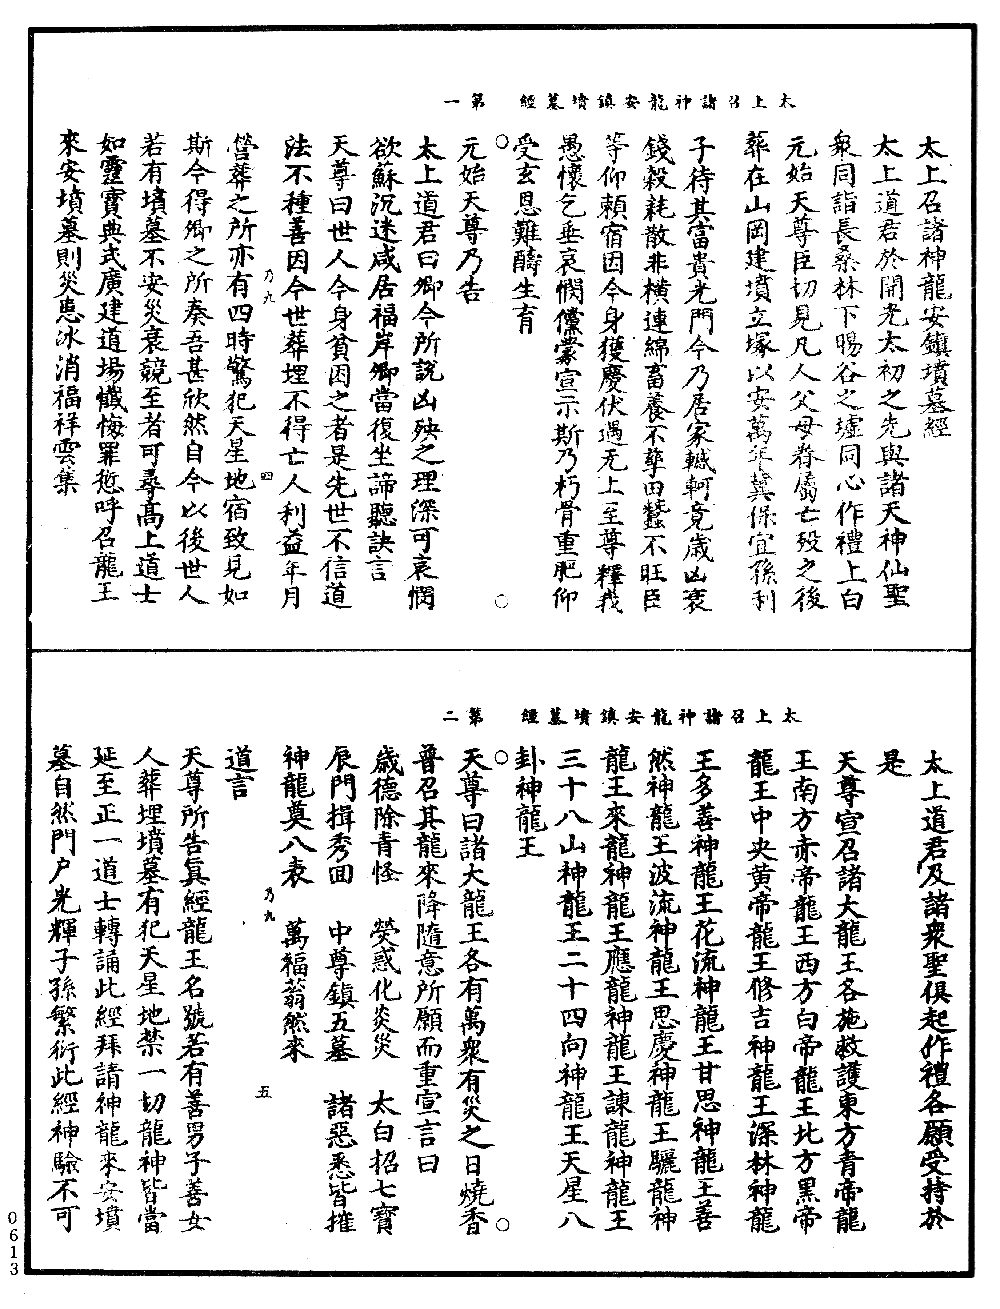 太上召諸神龍安鎮墳墓經　第一
太上召諸神龍安鎮墳墓經
太上道君於開光太初之先與諸天神仙聖
衆同詣長桑林下賜谷之墟同心作禮上白
元始天尊臣切見凡人父母眷屬亡殁之後
葬在山岡建墳立塚以安萬年冀保宜孫利
子待其當貴光門今乃居家轗軻竟歲凶衰
錢穀耗散非橫連綿畜養不孳田蠶不旺臣
等仰賴宿因今身獲慶伏遇无上至尊釋我
愚懷乞垂哀憫儻蒙宣示斯乃朽骨重肥仰
受玄恩難酧生育
元始天尊乃告
太上道君曰卿今所說凶殃之理深可哀憫
欲蘇沉迷咸居福岸卿當復坐諦聽訣言
天尊曰世人今身貧困之者是先世不信道
法不種善因今世葬埋不得亡人利益年月
乃九　四
營葬之所亦有四時驚犯天星地宿致見如
斯今得卿之所奏吾甚欣然自今以後世人
若有墳墓不安災衰競至者可尋高上道士
如靈寶典式廣建道場懺悔罪愆呼召龍王
來安墳墓則災患冰消福祥雲集
太上召諸神龍安鎮墳墓經　第二
太上道君及諸衆聖俱起作禮各願受持於
是
天尊宣召諸大龍王各施救護東方青帝龍
王南方赤帝龍王西方白帝龍王北方黑帝
龍王中央黄帝龍王修吉神龍王深林神龍
王多善神龍王花流神龍王甘思神龍王善
然神龍王波流神龍王思慶神龍王驪龍神
龍王來龍神龍王應龍神龍王諫龍神龍王
三十八山神龍王二十四向神龍王天星八
卦神龍王
天尊曰諸大龍王各有萬衆有災之日燒香
普召其龍來降隨意所願而重宣言曰
歲德除青怪　熒惑化炎災　太白招七寶
辰門揖秀回　中尊鎮五墓　諸惡悉皆摧
神龍奠八表　萬福蓊然來
乃九　五
道言
天尊所告眞經龍王名號若有善男子善女
人葬埋墳墓有犯天星地禁一切龍神皆當
延至正一道士轉誦此經拜請神龍來安墳
墓自然門户光輝子孫繁衍此經神驗不可
0613